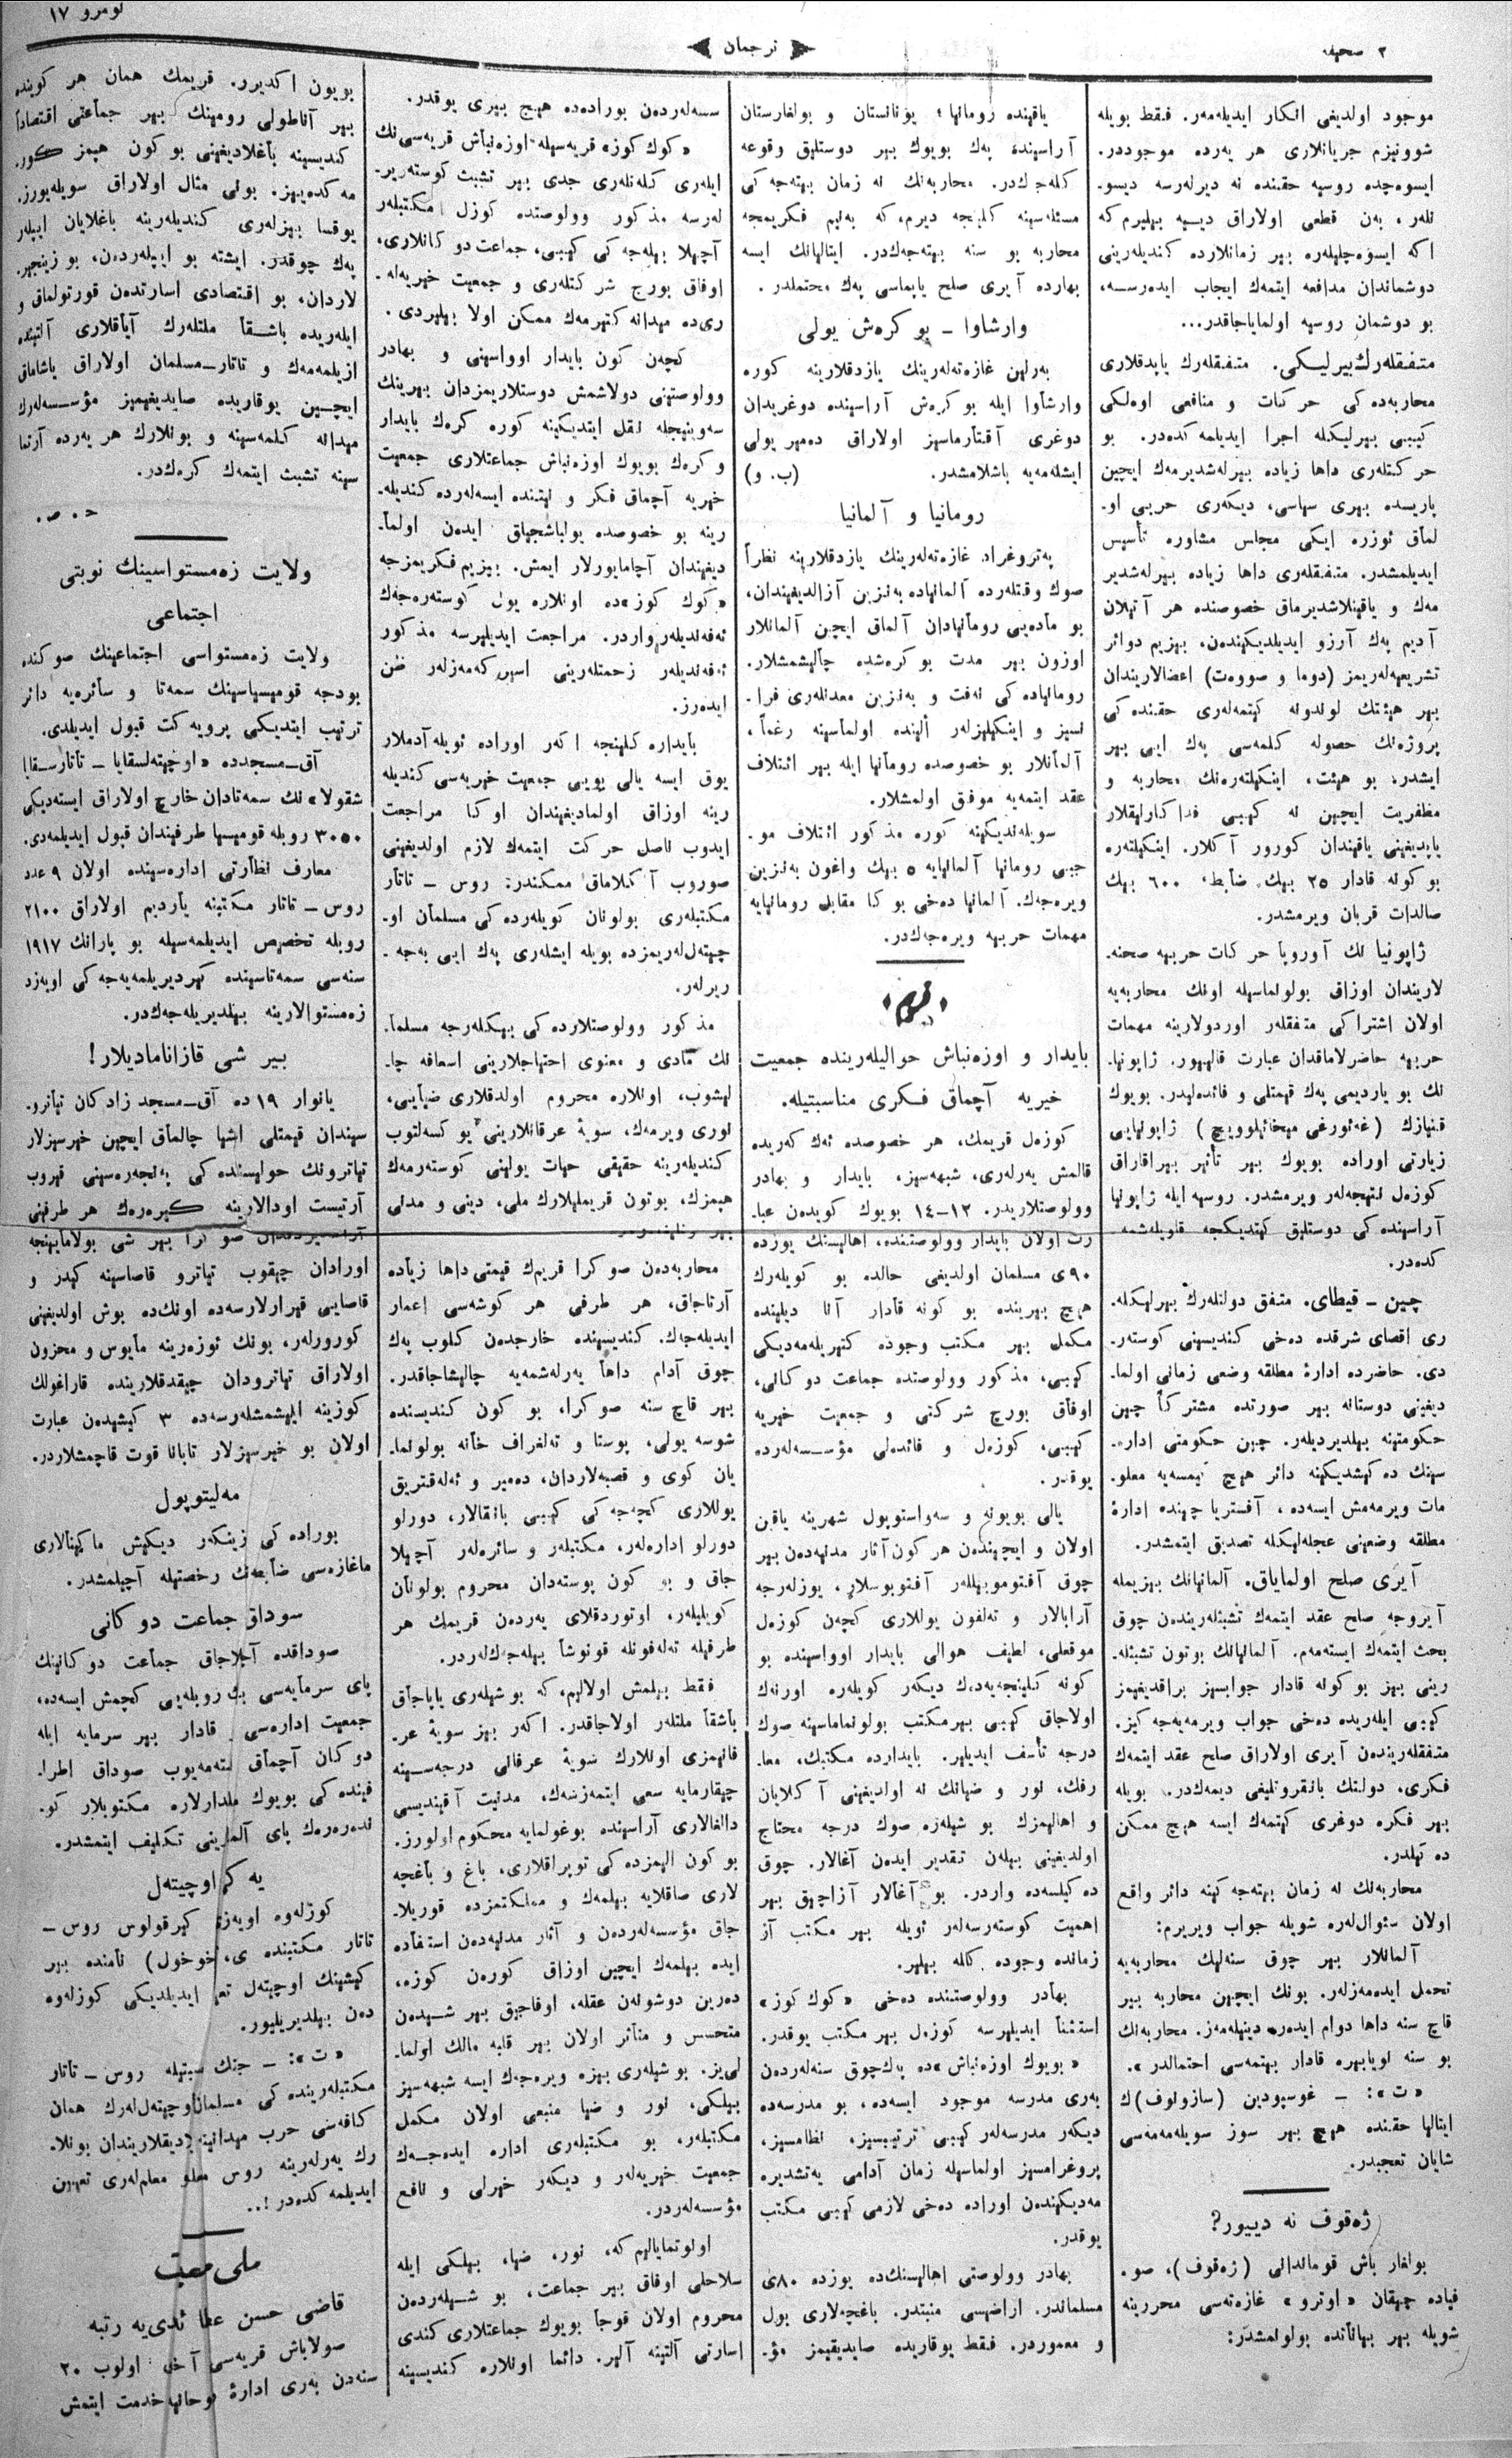 ٢ صحیفه
ترجمان
نومرو ١٧
موجود اولدیغی انكار ایدیله‌مه‌ز. فقط بویله
شووینیزم جریانلاری هر یه‌رده موجوددر.
ایسوه‌چده روسیه حقنده نه دیرله‌رسه دیسو-
نله‌ر، به‌ن قطعی اولاراق دییه بیلیرم كه
اكه ایسوه‌چلیله‌ره بیر زمانلارده كندیله‌رینی
دوشماندان مدافعه ایتمه‌ك ایجاب ایده‌رسه،
بو دوشمان روسیه اولمایاجاقدر...
متفقله‌رك بیرلیكی. متفقله‌رك یاپدقلاری
محاربه‌ده كی حركات و منافعی اوه‌لكی
كیبی بیرلیكله اجرا ایدیلمه كده‌در. بو
حركتله‌ری داها زیاده بیرله‌شدیرمه‌ك ایچین
پاریسده بیری سیاسی، دیكه‌ری حربی او-
لماق ئوزره ایكی مجلس مشاوره تأسیس
ایدیلمشدر. متفقله‌ری داها زیاده بیرله‌شدیر
مه‌ك و یاقینلاشدیرماق خصوصنده هر آتیلان
آدیم په‌ك آرزو ایدیلدیكیندن، بیزیم دوائر
تشریعیه‌له‌ریمز (دوما و سووه‌ت) اعضالاریندان
بیر هیئتك لوندونه كیتمه‌له‌ری حقنده كی
پروژه‌نك حصوله كلمه‌سی په‌ك ایی بیر
ایشدر. بو هیئت، اینكیلتره‌نك محاربه و
مظفریت ایچین نه كیبی فداكارلیقلار
یاپدیغینی یاقیندان كورور آكلار. اینكیلتره
بو كونه قادار ٢٥ بیك ضابط، ٦٠٠ بیك
صالدات قربان ویرمشدر.
ژاپونیا نك آوروپا حركات حربیه صحنه-
لاریندان اوزاق بولونماسیله اونك محاربه‌یه
اولان اشتراكی متفقله‌ر اوردولارینه مهمات
حربیه حاضرلاماقدان عبارت قالییور. ژاپونیا-
نك بو یاردیمی په‌ك قیمتلی و فائده‌لیدر. بویوك
قنیازك (غه‌ئورغی میخائیلوویچ) ژاپونیایی
زیارتی اوراده بویوك بیر تأثیر بیراقاراق
كوزه‌ل نتیجه‌له‌ر ویرمشدر. روسیه ایله ژاپونیا
آراسینده كی دوستلیق كیتدیكجه قاویله‌شمه-
كده‌در.
چین - قیطای. متفق دولتله‌رك بیرلیكله-
ری اقصای شرقده ده‌خی كندیسینی كوسته‌ر-
دی. حاضرده ادارهٔ مطلقه وضعی زمانی اولما-
دیغینی دوستانه بیر صورتده مشتركاً چین
حكومتینه بیلدیردیله‌ر. چین حكومتی اداره-
سینك ده‌كیشدیكینه دائر هیچ كیمسه‌یه معلو-
مات ویرمه‌مش ایسه‌ده، آفستریا چینده ادارهٔ
مطلقه وضعینی عجله‌لیكله تصدیق ایتمشدر.
آیری صلح اولمایاق. آلمانیانك بیزیمله
آیروجه صلح عقد ایتمه‌ك تشبثله‌ریندن چوق
بحث ایتمه‌ك ایسته‌مه‌م. آلمانیانك بوتون تشبثله-
رینی بیز بو كونه قادار جوابسیز براقدیغیمز
كیبی ایله‌ریده ده‌خی جواب ویرمه‌یه‌جه كیز.
متفقله‌ریندن آیری اولاراق صلح عقد ایتمه‌ك
فكری، دولتك بانقروتلیغی دیمه‌كدر. بویله
بیر فكره دوغری كیتمه‌ك ایسه هیچ ممكن
ده كیلدر.
محاربه‌نك نه زمان بیته‌جه كینه دائر واقع
اولان سئوال‌له‌ره شویله جواب ویریرم:
آلمانلار بیر چوق سنه‌لیك محاربه‌یه
تحمل ایده‌مه‌زله‌ر. بونك ایچین محاربه بیر
قاچ سنه داها دوام ایده‌ر دینیله‌مه‌ز. محاربه‌نك
بو سنه نویابره قادار بیتمه‌سی احتمالدر».
«ت»: - غوسپودین (سازونوف)ك
ایتالیا حقنده هیچ بیر سوز سویله‌مه‌مه‌سی
شایان تعجبدر.
ژه‌قوف نه دییور؟
بولغار باش قوماندانی (ژه‌قوف)، صو-
فیاده چیقان «اوترو» غازه‌ته‌سی محررینه
شویله بیر بیاناتده بولونمشدر:
یاقینده رومانیا، یونانستان و بولغارستان
آراسینده په‌ك بویوك بیر دوستلیق وقوعه
كله‌جه‌كدر. محاربه‌نك نه زمان بیته‌جه كی
مسئله‌سینه كلینجه دیرم، كه به‌نیم فكریمجه
محاربه بو سنه بیته‌جه‌كدر. ایتالیانك ایسه
بهارده آیری صلح یاپماسی په‌ك محتملدر.
وارشاوا - بوكره‌ش یولی
به‌رلین غازه‌ته‌له‌رینك یازدقلارینه كوره
وارشاوا ایله بوكره‌ش آراسینده دوغریدان
دوغری آقتارماسیز اولاراق ده‌میر یولی
ایشله‌مه‌یه باشلامشدر. (پ. و)
رومانیا و آلمانیا
په‌تروغراد غازه‌ته‌له‌رینك یازدقلارینه نظراً
صوك وقتله‌رده آلمانیاده به‌نزین آزالدیغیندان،
بو ماده‌یی رومانیادان آلماق ایچین آلمانلار
اوزون بیر مدت بوكره‌شده چالیشمشلار.
رومانیاده كی نه‌فت و به‌نزین معدنله‌ری فرا-
نسیز و اینكیلیزله‌ر الینده اولماسینه رغماً،
آلمانلار بو خصوصده رومانیا ایله بیر ائتلاف
عقد ایتمه‌یه موفق اولمشلار.
سویله‌ندیكینه كوره مذكور ائتلاف مو-
جبی رومانیا آلمانیایه ٥ بیك واغون به‌نزین
ویره‌جه‌ك. آلمانیا ده‌خی بوكا مقابل رومانیایه
مهمات حربیه ویره‌جه‌كدر.
«قریم»
بایدار و اوزه‌نباش حوالیله‌رینده جمعیت
خیریه آچماق فكری مناسبتیله.
كوزه‌ل قریمك، هر خصوصده ئه‌ك كه‌ریده
قالمش یه‌رله‌ری، شبهه‌سیز، بایدار و بهادر
وولوصتلاریدر. ١٢-١٤ بویوك كویدن عبا-
رت اولان بایدار وولوصتنده، اهالیسینك یوزده
٩٠ی مسلمان اولدیغی حالده بو كویله‌رك
هیچ بیرینده بو كونه قادار آنا دیلینده
مكمل بیر مكتب وجوده كتیریله‌مه‌دیكی
كیبی، مذكور وولوصتده جماعت دوكانی،
اوفاق بورچ شركتی و جمعیت خیریه
كیبی، كوزه‌ل و فائده‌لی مؤسسه‌له‌رده
یوقدر.
یالی بویونه و سه‌واستوپول شهرینه یاقین
اولان و ایچیندن هر كون آثار مدنیه‌دن بیر
چوق آفتوموبیلله‌ر آفتوبوسلار، یوزله‌رجه
آرابالار و ته‌لفون یوللاری كچن كوزه‌ل
موقعلی، لطیف هوالی بایدار اوواسینده بو
كونه كلینجه‌یه‌دك دیكه‌ر كویله‌ره اورنه‌ك
اولاجاق كیبی بیر مكتب بولونماماسینه صوك
درجه تأسف ایدیلیر. بایدارده مكتبك، معا-
رفك، نور و ضیانك نه اولدیغینی آكلایان
و اهالیمزك بو شیله‌ره صوك درجه محتاج
اولدیغینی بیله‌ن تقدیر ایده‌ن آغالار. چوق
ده كیلسه‌ده واردر. بو آغالار آزاچیق بیر
اهمیت كوسته‌رسه‌له‌ر ئویله بیر مكتب آز
زمانده وجوده كله بیلیر.
بهادر وولوصتنده ده‌خی «كوك كوز»
استثنأ ایدیلیرسه كوزه‌ل بیر مكتب یوقدر.
«بویوك اوزه‌نباش»ده په‌ك چوق سنه‌له‌ردن
به‌ری مدرسه موجود ایسه‌ده، بو مدرسه‌ده
دیكه‌ر مدرسه‌له‌ر كیبی ترتیبسیز، نظامسیز،
پروغرامسیز اولماسیله زمان آدامی یه‌تشدیره
مه‌دیكیندن اوراده ده‌خی لازمی كیبی مكتب
یوقدر.
بهادر وولوصتی اهالیسینك‌ده یوزده ٨٠ی
مسلماندر. اراضیسی منبتدر. باغچه‌لاری بول
و معموردر. فقط یوقاریده صایدیقیمز مؤ-
سسه‌له‌ردن بوراده‌ده هیچ بیری یوقدر.
«كوك كوز» قریه‌سیله اوزه‌نباش قریه‌سی‌نك
ایله‌ری كله‌نله‌ری جدی بیر تشبث كوسته‌ریر-
له‌رسه مذكور وولوصتده كوزل مكتبله‌ر
آچیلا بیله‌جه كی كیبی، جماعت دوكانلاری،
اوفاق بورج شركتله‌ری و جمعیت خیریه‌له-
ری‌ده میدانه كتیرمه‌ك ممكن اولا بیلیردی.
كچه‌ن كون بایدار اوواسینی و بهادر
وولوصتینی دولاشمش دوستلاریمزدان بیرینك
سه‌وینیجله نقل ایتدیكینه كوره كره‌ك بایدار
و كره‌ك بویوك اوزه‌نباش جماعتلاری جمعیت
خیریه آچماق فكر و نیتنده ایسه‌له‌رده كندیله-
رینه بو خصوصده یولباشچیلق ایده‌ن اولما-
دیغیندان آچامایورلار ایمش. بیزیم فكریمزجه
«كوك كوز»ده اونلاره یول كوسته‌ره‌جه‌ك
ئه‌فه‌ندیله‌ر واردر. مراجعت ایدیلیرسه مذكور
ئه‌فه‌ندیله‌ر زحمتله‌رینی اسیركه‌مه‌زله‌ر ظن
ایده‌رز.
بایداره كلینجه اكه‌ر اوراده ئویله آدملار
یوق ایسه یالی بویی جمعیت خیریه‌سی كندیله
رینه اوزاق اولمادیغیندان اوكا مراجعت
ایدوب ناصل حركت ایتمه‌ك لازم اولدیغینی
صوروب آكلاماق ممكندر. روس - تاتار
مكتبله‌ری بولونان كویله‌رده كی مسلمان او-
چیته‌ل‌له‌ریمزده بویله ایشله‌ری په‌ك ایی به‌جه-
ریرله‌ر.
مذكور وولوصتلارده كی بیكله‌رجه مسلما-
نك مادی و معنوی احتیاجلارینی اسعافه چا-
لیشوب، اونلاره محروم اولدقلاری ضیایی،
نوری ویرمه‌ك، سویهٔ عرفانلارینی یو كسه‌لتوب
كندیله‌رینه حقیقی حیات یولینی كوسته‌رمه‌ك
هیمزك، بوتون قریملیلارك ملی، دینی و مدنی
محاربه‌دن صوكرا قریمك قیمتی داها زیاده
آرتاجاق، هر طرفی هر كوشه‌سی اعمار
ایدیله‌جه‌ك. كندیسینده خارجدن كلوب په‌ك
چوق آدام داها یه‌رله‌شمه‌یه چالیشاجاقدر.
بیر قاچ سنه صوكرا، بو كون كندیسنده
شوسه یولی، پوستا و ته‌لغراف خانه بولونما-
یان كوی و قصبه‌لاردان، ده‌میر و ئه‌له‌قتریق
یوللاری كچه‌جه كی كیبی بانقالار، دورلو
دورلو اداره‌له‌ر، مكتبله‌ر و سائره‌له‌ر آچیلا
جاق و بو كون پوسته‌دان محروم بولونان
كویلیله‌ر، اوتوردقلای یه‌ردن قریمك هر
طرفیله ته‌له‌فونله قونوشا بیله‌جه‌كله‌ردر.
فقط بیلمش اولالیم، كه بو شیله‌ری یاپاجاق
باشقا ملتله‌ر اولاجاقدر. اكه‌ر بیز سویهٔ عر-
فانیمزی اونلارك سویهٔ عرفانی درجه‌سینه
چیقارمایه سعی ایتمه‌زسه‌ك، مدنیت آقیندیسی
دالغالاری آراسینده بوغولمایه محكوم اولورز.
بو كون الیمزده كی توپراقلاری، باغ و باغچه
لاری صاقلایه بیلمه‌ك و مملكتمزده قوریلا-
جاق مؤسسه‌له‌ردن و آثار مدنیه‌دن استفاده
ایده بیلمه‌ك ایچین اوزاق كوره‌ن كوزه،
ده‌رین دوشونه‌ن عقله، اوفاجیق بیر شیدن
متحسس و متأثر اولان بیر قلبه مالك اولما-
لی‌یز. بو شیله‌ری بیزه ویره‌جه‌ك ایسه شبهه‌سیز
بیلكی، نور و ضیا منبعی اولان مكمل
مكتبله‌ر، بو مكتبله‌ری اداره ایده‌جه‌ك
جمعیت خیریه‌له‌ر و دیكه‌ر خیرلی و نافع
مؤسسه‌له‌ردر.
اونوتمایالیم كه، نور، ضیا، بیلكی ایله
سلاحلی اوفاق بیر جماعت، بو شیله‌ردن
محروم اولان قوجا بویوك جماعتلاری كندی
اسارتی آلتینه آلیر. دائما اونلاره كندیسینه
بویون اكدیرر. قریمك همان هر كوینده
بیر آناطولی رومینك بیر جماعتی اقتصاداً
كندیسینه باغلادیغینی بو كون هیمز كور-
مه كده‌ییز. بونی مثال اولاراق سویله‌یورز.
یوقسا بیزله‌ری كندیله‌رینه باغلایان ایپله‌ر
په‌ك چوقدر. ایشته بو ایپله‌ردن، بو زینجیر-
لاردان، بو اقتصادی اسارتدن قورتولماق و
ایله‌ریده باشقا ملتله‌رك آیاقلاری آلتینده
ازیلمه‌مه‌ك و تاتار-مسلمان اولاراق یاشاماق
ایچین یوقاریده صایدیغیمز مؤسسه‌له‌رك
میدانه كلمه‌سینه و بونلارك هر یه‌رده آرتما
سینه تشبث ایتمه‌ك كره‌كدر.
ح. ص.
ولایت زه‌مستواسینك نوبتی
اجتماعی
ولایت زه‌مستواسی اجتماعینك صوكنده
بودجه قومیسیاسینك سمه‌تا و سائره‌یه دائر
ترتیب ایتدیكی پرویه‌كت قبول ایدیلدی.
آق-مسجدده «اوچیته‌لسقایا - تاتارسقایا
شقولا» نك سمه‌تادان خارج اولاراق ایسته‌دیكی
٣٠٥٠ روبله قومیسیا طرفیندان قبول ایدیلمه‌دی.
معارف نظارتی اداره‌سینده اولان ٩ عدد
روس - تاتار مكتبینه یاردیم اولاراق ٢١٠٠
روبله تخصیص ایدیلمه‌سیله بو پارانك ١٩١٧
سنه‌سی سمه‌تاسینده كیردیریلمه‌یه‌جه كی اویه‌زد
زه‌مستوالارینه بیلدیریله‌جه‌كدر.
بیر شی قازانامادیلار!
یانوار ١٩ ده آق-مسجد زادكان تیاترو-
سیندان قیمتلی اشیا چالماق ایچین خیرسیزلار
تیاترونك حولیسنده كی په‌نجه‌ره‌سینی قیروب
آرتیست اودالارینه كیره‌ره‌ك هر طرفینی
آراشدیردقدان صوكرا بیر شی بولامایینجه
اورادان چیقوب تیاترو قاصاسینه كیدر و
قاصایی قیرارلارسه‌ده اونك‌ده بوش اولدیغینی
كورورله‌ر، بونك ئوزه‌رینه مأیوس و محزون
اولاراق تیاترودان چیقدقلارینده قاراغولك
كوزینه ایلیشمشله‌رسه‌ده ٣ كیشیدن عبارت
اولان بو خیرسیزلار تابانا قوت قاچمشلاردر.
مه‌لیتوپول
بوراده كی زینكه‌ر دیكیش ماكینالاری
ماغازه‌سی ضابطه‌نك رخصتیله آچیلمشدر.
سوداق جماعت دوكانی
صوداقده آچلاجاق جماعت دوكانینك
پای سرمایه‌سی بیك روبله‌یی كچمش ایسه‌ده،
جمعیت اداره‌سی قادار بیر سرمایه ایله
دوكان آچماق ایسته‌مه‌یوب صوداق اطرا-
فینده كی بویوك ملدارلاره مكتوبلار كو-
نده‌ره‌ره‌ك پای آلمارینی تكلیف ایتمشدر.
یه كی اوچیته‌ل
كوزله‌وه اویه‌زی كیرقولوس روس -
تاتار مكتبنده ی، (خوخول) نامنده بیر
كیشینك اوچیته‌ل تعیین ایدیلدیكی كوزله‌وه
دن بیلدیریلیور.
«ت»: - جنك سببیله روس - تاتار
مكتبله‌رینده كی مسلمان اوچیته‌ل‌له‌رك همان
كافه‌سی حرب میدانینه كیتدیقلاریندان بونلا-
رك یه‌رله‌رینه روس معلم معلمه‌له‌ری تعیین
ایدیلمه كده‌در!..
ملی معیشت
قاضی حسن عطا ئه‌فه‌ندی‌یه رتبه
صولاباش قریه‌سی آخوندی اولوب ٢٠
سنه‌دن به‌ری ادارهٔ روحانیه خدمت ایتمش